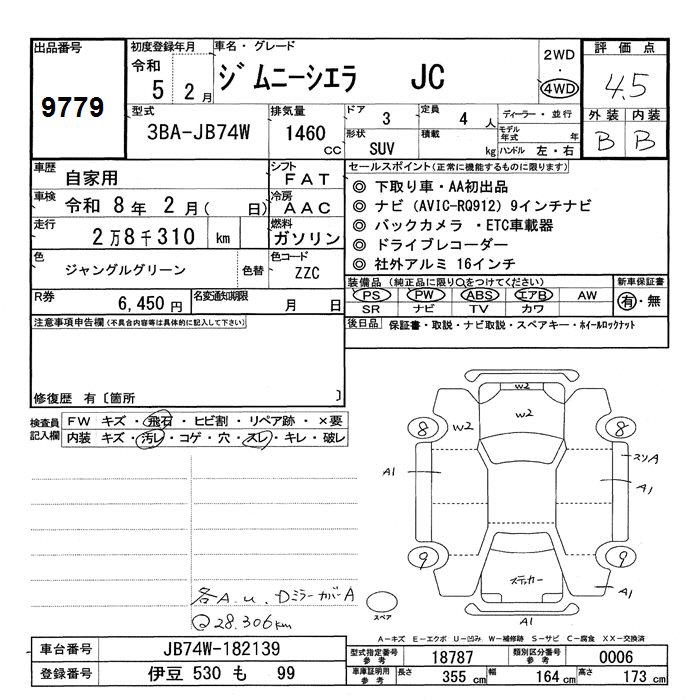 出品番号
9779
初度登録年月
令和
5 2月
車名・グレード
ジムニーシエラ JC
2WD
・
4WD
評価点
4.5
外装 内装
B B
型式
3BA-JB74W
排気量
1460 cc
ドア 3
定員 4人
形状 SUV
積載 kg
ディーラー・並行
モデル年式 年
ハンドル 左・右
車歴 自家用
シフト FAT
車検 令和 8年 2月( 日)
冷房 AAC
走行 2万8千310 km
燃料 ガソリン
色 ジャングルグリーン 色替
色コード ZZC
R券 6,450円
名変通知期限 月 日
セールスポイント(正常に機能するものに限ります)
◎ 下取り車・AA初出品
◎ ナビ (AVIC-RQ912) 9インチナビ
◎ バックカメラ ・ETC車載器
◎ ドライブレコーダー
◎ 社外アルミ 16インチ
装備品(純正品に限り○をつけてください)
PS PW ABS エアB AW
SR ナビ TV カワ
新車保証書
有・無
後日品 保証書・取説・ナビ取説・スペアキー・ホイールロックナット
注意事項申告欄(不具合内容等は具体的に記入して下さい)
修復歴 有〔箇所 〕
検査員記入欄
FW キズ・飛石・ヒビ割・リペア跡・×要
内装 キズ・汚レ・コゲ・穴・スレ・キレ・破レ
W2
W2
W2
8
8
A1
スリA
A1
9
9
ステッカー
A1
A1
スペア
各A.U. Dミラーカバー A
@28.306km
A−キズ E−エクボ U−凹み W−補修跡 S−サビ C−腐食 XX−交換済
車台番号 JB74W-182139
登録番号 伊豆 530 も 99
型式指定番号 参考 18787
類別区分番号 参考 0006
車庫証明用 参考 長さ 355 cm 幅 164 cm 高さ 173 cm